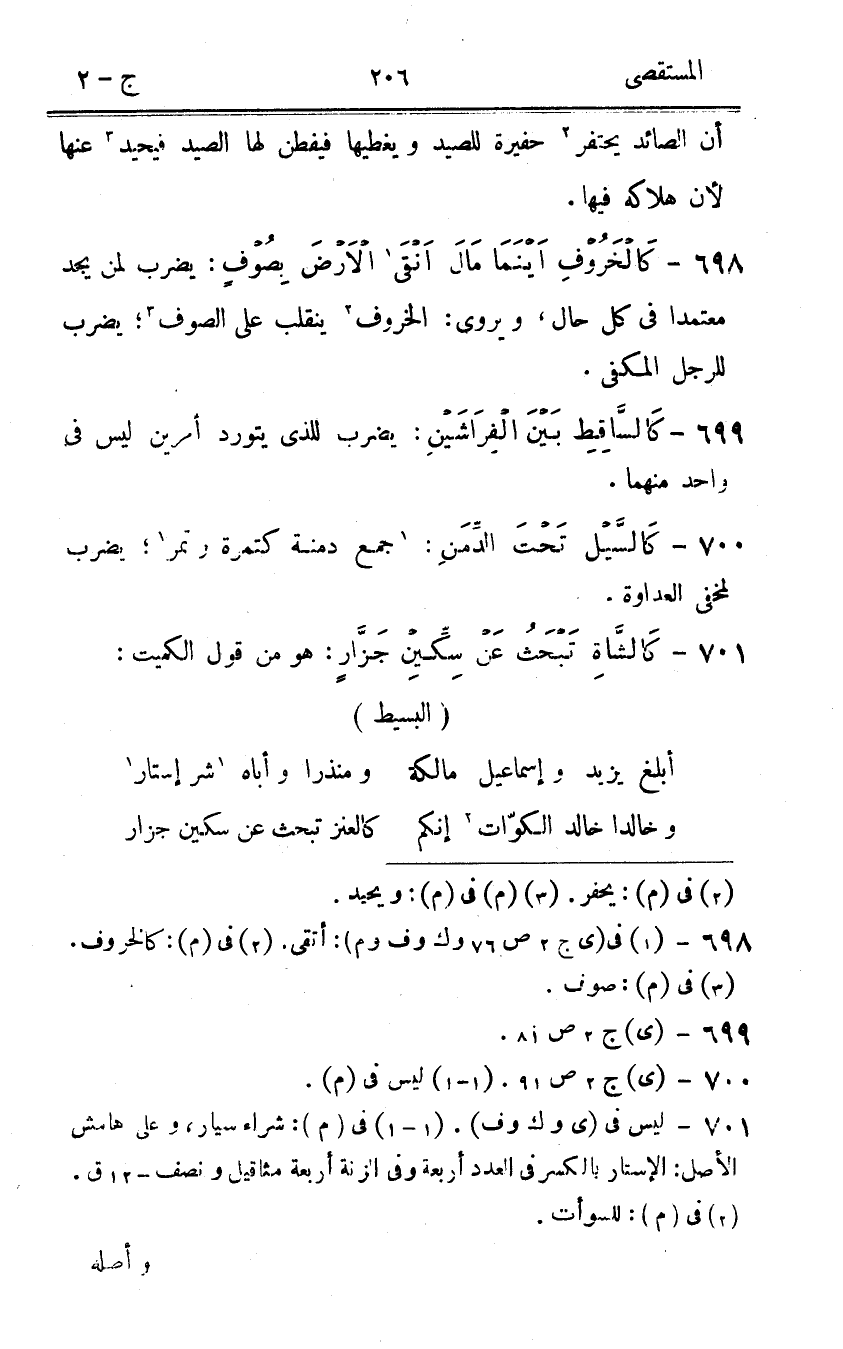 المستقصى ٢٠٦ ج - ٢
أن الصائد يحتفر٢ حفيرة للصيد و يغطيها فيفطن لها الصيد فيحيد٣ عنها
لأن هلاكه فيها .
٦٩٨ - كَالْخَرُوْفِ اَيْنَمَا مَالَ اَتْقَى١ الْاَرْضَ بِصُوْفٍ : يضرب لمن يجد
معتمدا فى كل حال ، و يروى : الخروف٢ ينقلب على الصوف٣ ؛ يضرب
للرجل المكفى .
٦٩٩ - كَالسَّاقِطِ بَيْنَ الْفِرَاشَيْنِ : يضرب للذى يتورد أمرين ليس فى
واحد منهما .
٧٠٠ - كَالسَّيْلِ تَحْتَ الدِّمَنِ : ١جمع دمنة كتمرة و تمر١ ؛ يضرب
لمخفى العداوة .
٧٠١ - كَالشَّاةِ تَبْحَثُ عَنْ سِكِّيْنِ جَزَّارٍ : هو من قول الكميت :
( البسيط )
أبلغ يزيد و إسماعيل مالكة و منذرا و أباه ١شر إستار١
و خالدا خالد الكوّات٢ إنكم كالعنز تبحث عن سكين جزار
(٢) فى (م) : يحفر . (٣) (م) فى (م) : و يحيد .
٦٩٨ - (١) فى (ى ج ٢ ص ٧٦ و ك و ف و م) : أتقى . (٢) فى (م) : كالخروف .
(٣) فى (م) : صوف .
٦٩٩ - (ى) ج ٢ ص ٨١ .
٧٠٠ - (ى) ج ٢ ص ٩١ . (١-١) ليس فى (م) .
٧٠١ - ليس فى (ى و ك و ف) . (١ - ١) فى ( م ) : شراء سيار ، و على هامش
الأصل : الإستار بالكسر فى العدد أربعة و فى الزنة أربعة مثاقيل و نصف - ١٢ ق .
(٢) فى ( م ) : للسوأت .
و أصله